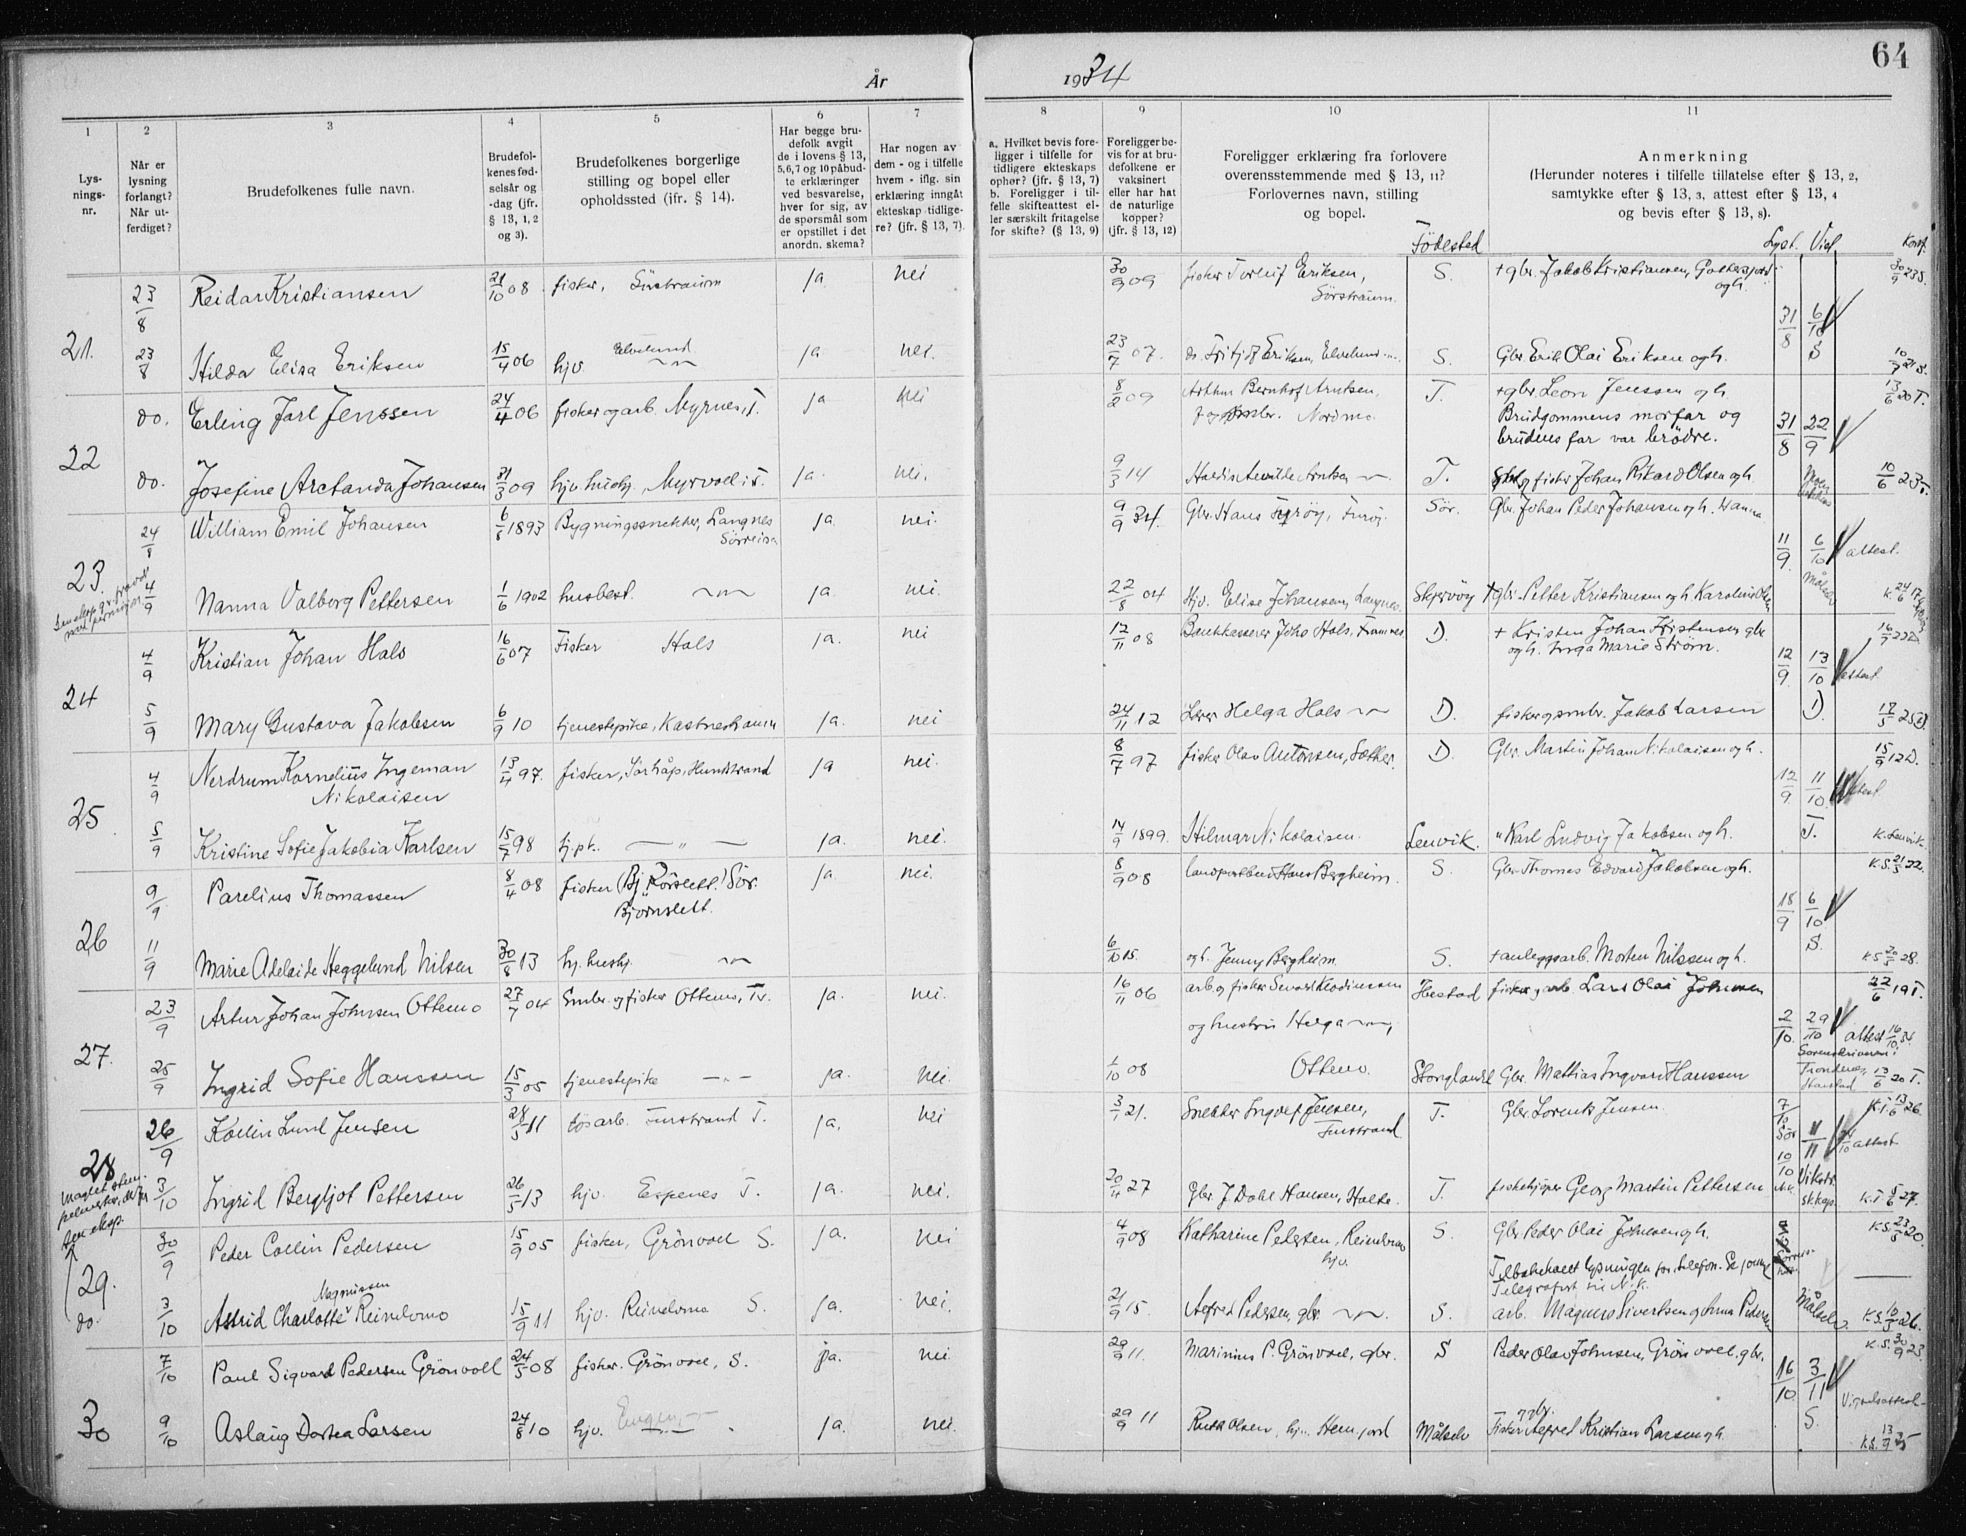 År 1934
64
1
2
3
4
5
6
7
8
9
10
11
Lysningsnr.
Når er lysning forlangt? Når utferdiget?
Brudefolkenes fulle navn.
Brudefolkenes fødselsår og -dag (jfr. § 13, 1, 2 og 3).
Brudefolkenes borgerlige stilling og bopel eller opholdssted (jfr. § 14).
Har begge brudefolk avgit de i lovens § 13, 5,6,7 og 10 påbudte erklæringer ved besvarelse, hver for sig, av de spørsmål som er opstillet i det anordn. skema?
Har nogen av dem - og i tilfelle hvem - iflg. sin erklæring inngått ekteskap tidligere? (jfr. § 13, 7).
a. Hvilket bevis foreligger i tilfelle for tidligere ekteskaps ophør? (jfr. § 13, 7) b. Foreligger i tilfelle skifteattest eller særskilt fritagelse for skifte? (§ 13, 9)
Foreligger bevis for at brudefolkene er vaksinert eller har hat de naturlige kopper? (jfr. § 13, 12)
Foreligger erklæring fra forlovere overensstemmende med § 13, 11? Forlovernes navn, stilling og bopel.
Födested
Anmerkning (Herunder noteres i tilfelle tillatelse efter § 13, 2, samtykke efter § 13, 3, attest efter § 13, 4 og bevis efter § 13, 8).
Lyst. Viet Konf.
21.
23/8 Reidar Kristiansen 21/10 08 fisker, Sörstraum ja nei 30/9 09 fisker Torleif Eriksen, Sörstraum. S. + gbr. Jakob Kristiansen, ogh. 30/9 23 S.
31/8 6/10 S
23/8 Hilda Elisa Eriksen 15/4 06 hjv. Elvelund ja nei. 23/7 07. do. Fritjof Eriksen, Elvelund S. Gbr. Erik Olai Eriksen ogh. 10/7 21 S.
22
do. Erling Jarl Jenssen 24/4 06 fisker og arb. Myrnes, T. ja nei 8/2 09 Arthur Bernhof Arntsen, Nordmo T. + gbr. Leon Jenssen ogh 13/6 20 T.
Brudgommens morfar og brudens far var brödre. 31/8 22/9
do. Josefine Arctanda Johansen 31/3 09 hjv. hushj. Myrvoll i T. ja. nei. 9/3 14 T. fisker Johan Rikard Olsen ogh 10/6 23 T.
23.
24/8 William Emil Johansen 6/8 1893 Bygningssnekker, Langnes Sørreisa ja. nei. 9/9 34. Gbr. Hans Furöy, Furöy. Sör. Gbr. Johan Peder Johansen og h. Hanna
11/9 6/10 attest. Målselv
4/9 Nanna Valborg Pettersen 1/6 1902 husbest. ja. nei. 22/8 04 Hjv. Elise Johansen, Langnes. Skjervöy + gbr. Petter Kristiansen og h. Karoline Olsen K. 24/6 17
24
4/9 Kristian Johan Hals 16/6 07 Fisker Hals ja. nei 12/11 08 Bankkasserer Johs Hals, Framnes D. + Kristen Johan Kristensen gbr og h. Inga Marie Strøm. 16/7 22 D.
12/9 13/10 attest D.
5/9 Mary Gustava Jakobsen 6/9 10 tjenestepike, Kastneshamn ja. nei 24/11 12 Lærer Helga Hals D. fisker og smbr. Jakob Larsen 17/5 25 D.
25
4/9 Nerdrum Kornelius Ingeman Nikolaisen 13/4 97. fisker, Sørhåp, Hunstrand ja nei. 8/7 97 fisker Olav Antonsen, Sætter. D Gbr. Martin Johan Nikolaisen og h. 15/9 12 D.
12/9 11/10 attest. T.
5/9 Kristine Sofie Jakobia Karlsen 15/7 98 tj.pk. — " — ja. nei. 14/9 1899. Hilmar Nikolaisen. Lenvik. " Karl Ludvig Jakobsen og h. K. Lenvik.
26
9/9 Parelius Thomassen 8/4 08 fisker (Bj. Rörslett!) Sör. Bjørnslett. ja. nei. 8/9 08 landpostbud Hans Bergheim. S. Gbr. Thomas Edvard Jakobsen og h. K.S. 21/5 22.
18/9 6/10 S.
11/9 Marie Adelaide Heggelund Nilsen 30/8 13 hj. hushj. 6/10 15. og h. Jenny Bergheim S. + anleggsarb. Morten Nilssen og h. K S 20/5 28.
27.
23/9 Artur Johan Johnsen Ottemo 27/7 04 Smbr. og fisker Ottemo, Tr. ja. nei. 16/11 06 arb. og fisker Sevard Klodiussen og hustru Helga Ibestad fisker og arb. Lars Olai Johnsen 22/6 19 T.
2/10. 29/10 attest 16/10 34. Sorenskriveren i Trondenes, Harstad
25/9 Ingrid Sofie Hanssen 15/3 05 tjenestepike — " — ja. nei. 1/10 08 Ottemo. Stonglandet Gbr. Mathias Ingvard Hanssen 13/6 20 T.
28
26/9 Kollin Lund Jensen 28/5 11 løsarb. Finstrand T. ja. nei 3/1 21. Snekker Ingolf Jensen, Finstrand T. Gbr. Lorentz Jensen. K.T. 13/6 26.
7/10 Sør 10/10 11/11 attest.
3/10 Ingrid Bergljot Pettersen 26/5 13 hjv. Espenes T. ja. nei. 20/4 27 Gbr. J Dahl Hansen, Holte. T. fiskekjøper Georg Martin Pettersen K.T. 5/6 27.
29.
30/9 Peder Collin Pedersen 15/9 05 fisker, Grönvoll S. ja. nei 4/9 08 Katharine Pedersen, Reindomo hjv. S. Gbr. Peder Olai Johnsen og h. K.S. 23/5 20.
Tilbakekalt lysningen for telefon.
do. 3/10 Astrid Charlotte Magnussen Reindomo 15/9 11 hjv. Reindomo S. ja. nei. 21/9 15. Alfred Pedersen, gbr. S. arb. Magnus Sivertsen og Anna Pedersen Målselv. K.S. 10/5 26.
30
7/10 Paul Sigvard Pedersen Grönvoll 24/5 08 fisker. Grönvoll, S. ja. nei 29/9 11. Marinius P. Grönvoll, gbr. S Peder Olav Johnsen, Grönvoll, gbr. K.S. 30/9 23.
16/10 3/11 S.
9/10 Aslaug Dortea Larsen 24/8 10 hjv. ja. nei. 29/9 11 Ruth Olsen, hj. Hemfjord Målselv Fisker og gbr. Alfred Kristian Larsen og h. K.S. 13/9 25